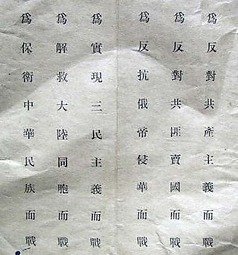 爲反對共產主義而戰
爲反對共匪賣國而戰
爲反抗俄帝侵華而戰
爲實現三民主義而戰
爲解救大陸同胞而戰
爲保衛中華民族而戰